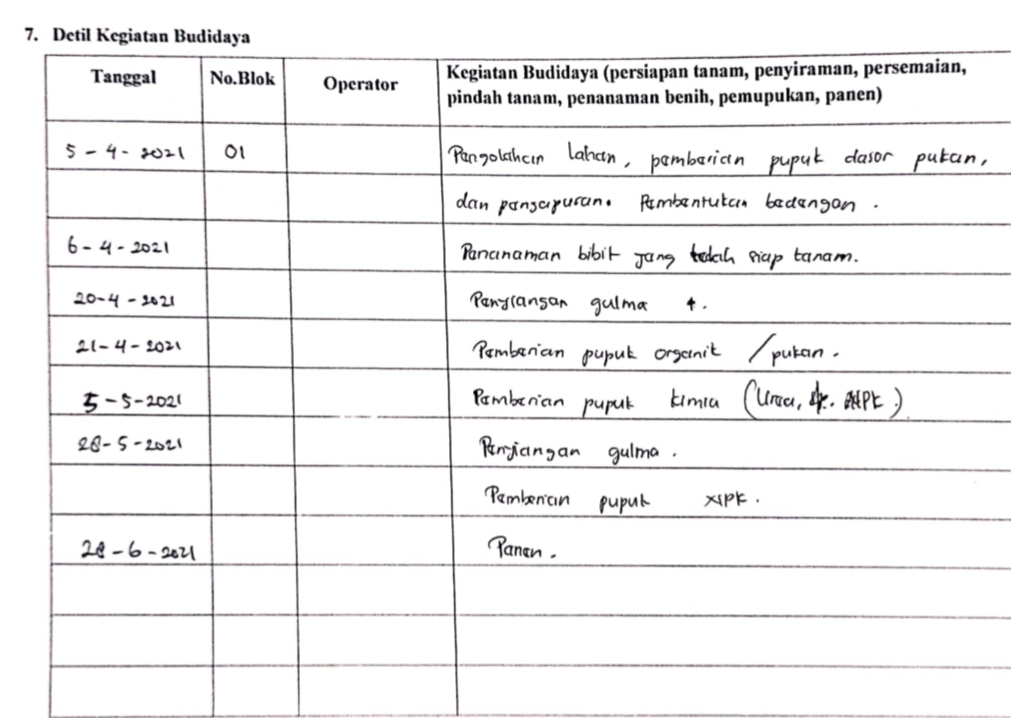 7. Detil Kegiatan Budidaya
Tanggal No.Blok Operator Kegiatan Budidaya (persiapan tanam, penyiraman, persemaian,
pindah tanam, penanaman benih, pemupukan, panen)
5-4-2021 01 Pengolahan lahan, pemberian pupuk dasar pukan,
dan pengapuran. Pembentukan bedengan.
6-4-2021 Penanaman bibit yang telah siap tanam.
20-4-2021 Penyiangan gulma
21-4-2021 Pemberian pupuk organik / pukan.
5-5-2021 Pemberian pupuk kimia (Urea, NPK.)
28-5-2021 Penyiangan gulma.
Pemberian pupuk NPK.
28-6-2021 Panen.